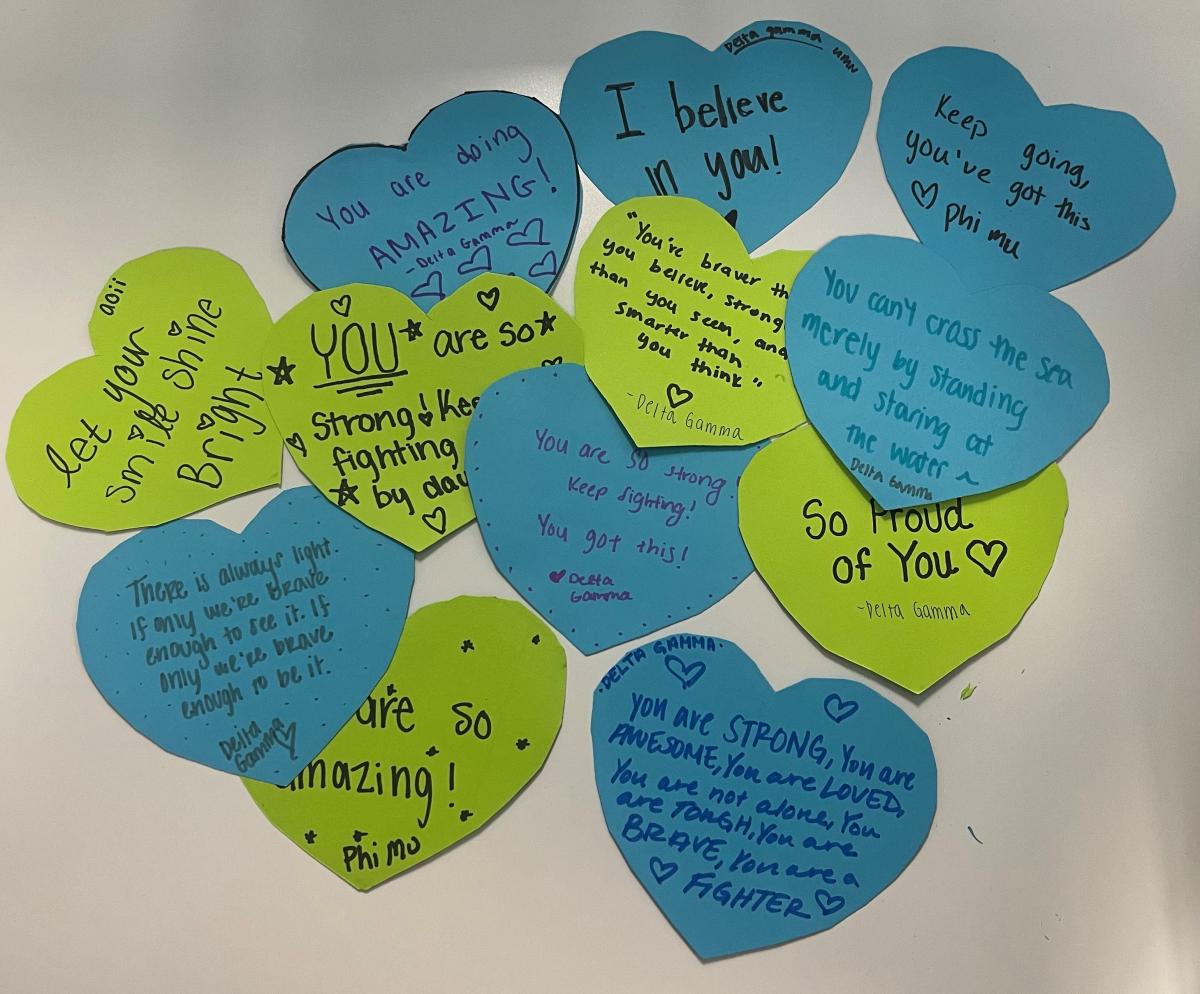 Delta gamma umn
I believe
in you!
Keep going,
you've got this
Phi mu
You are doing
AMAZING!
-Delta Gamma~
"You're braver th
you believe, strong
than you seem, and
smarter than
you think"
-Delta Gamma
You can't cross the sea
merely by standing
and staring at
the water ~
Delta Gamma
aoii
let your
smile shine
Bright
YOU are so
Strong! Kee
fighting
by day
You are so strong!
Keep fighting!
You got this!
Delta
Gamma
So Proud
of You
-Delta Gamma
There is always light.
If only we're Brave
enough to see it. If
only we're brave
enough to be it.
Delta
Gamma
are so
amazing!
Phi mu
·DELTA GAMMA·
You are STRONG, You are
AWESOME, You are LOVED,
You are not alone, You
are TOUGH, You are
BRAVE, You are a
FIGHTER